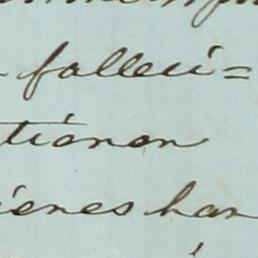 falleci=
tionen
ienes han